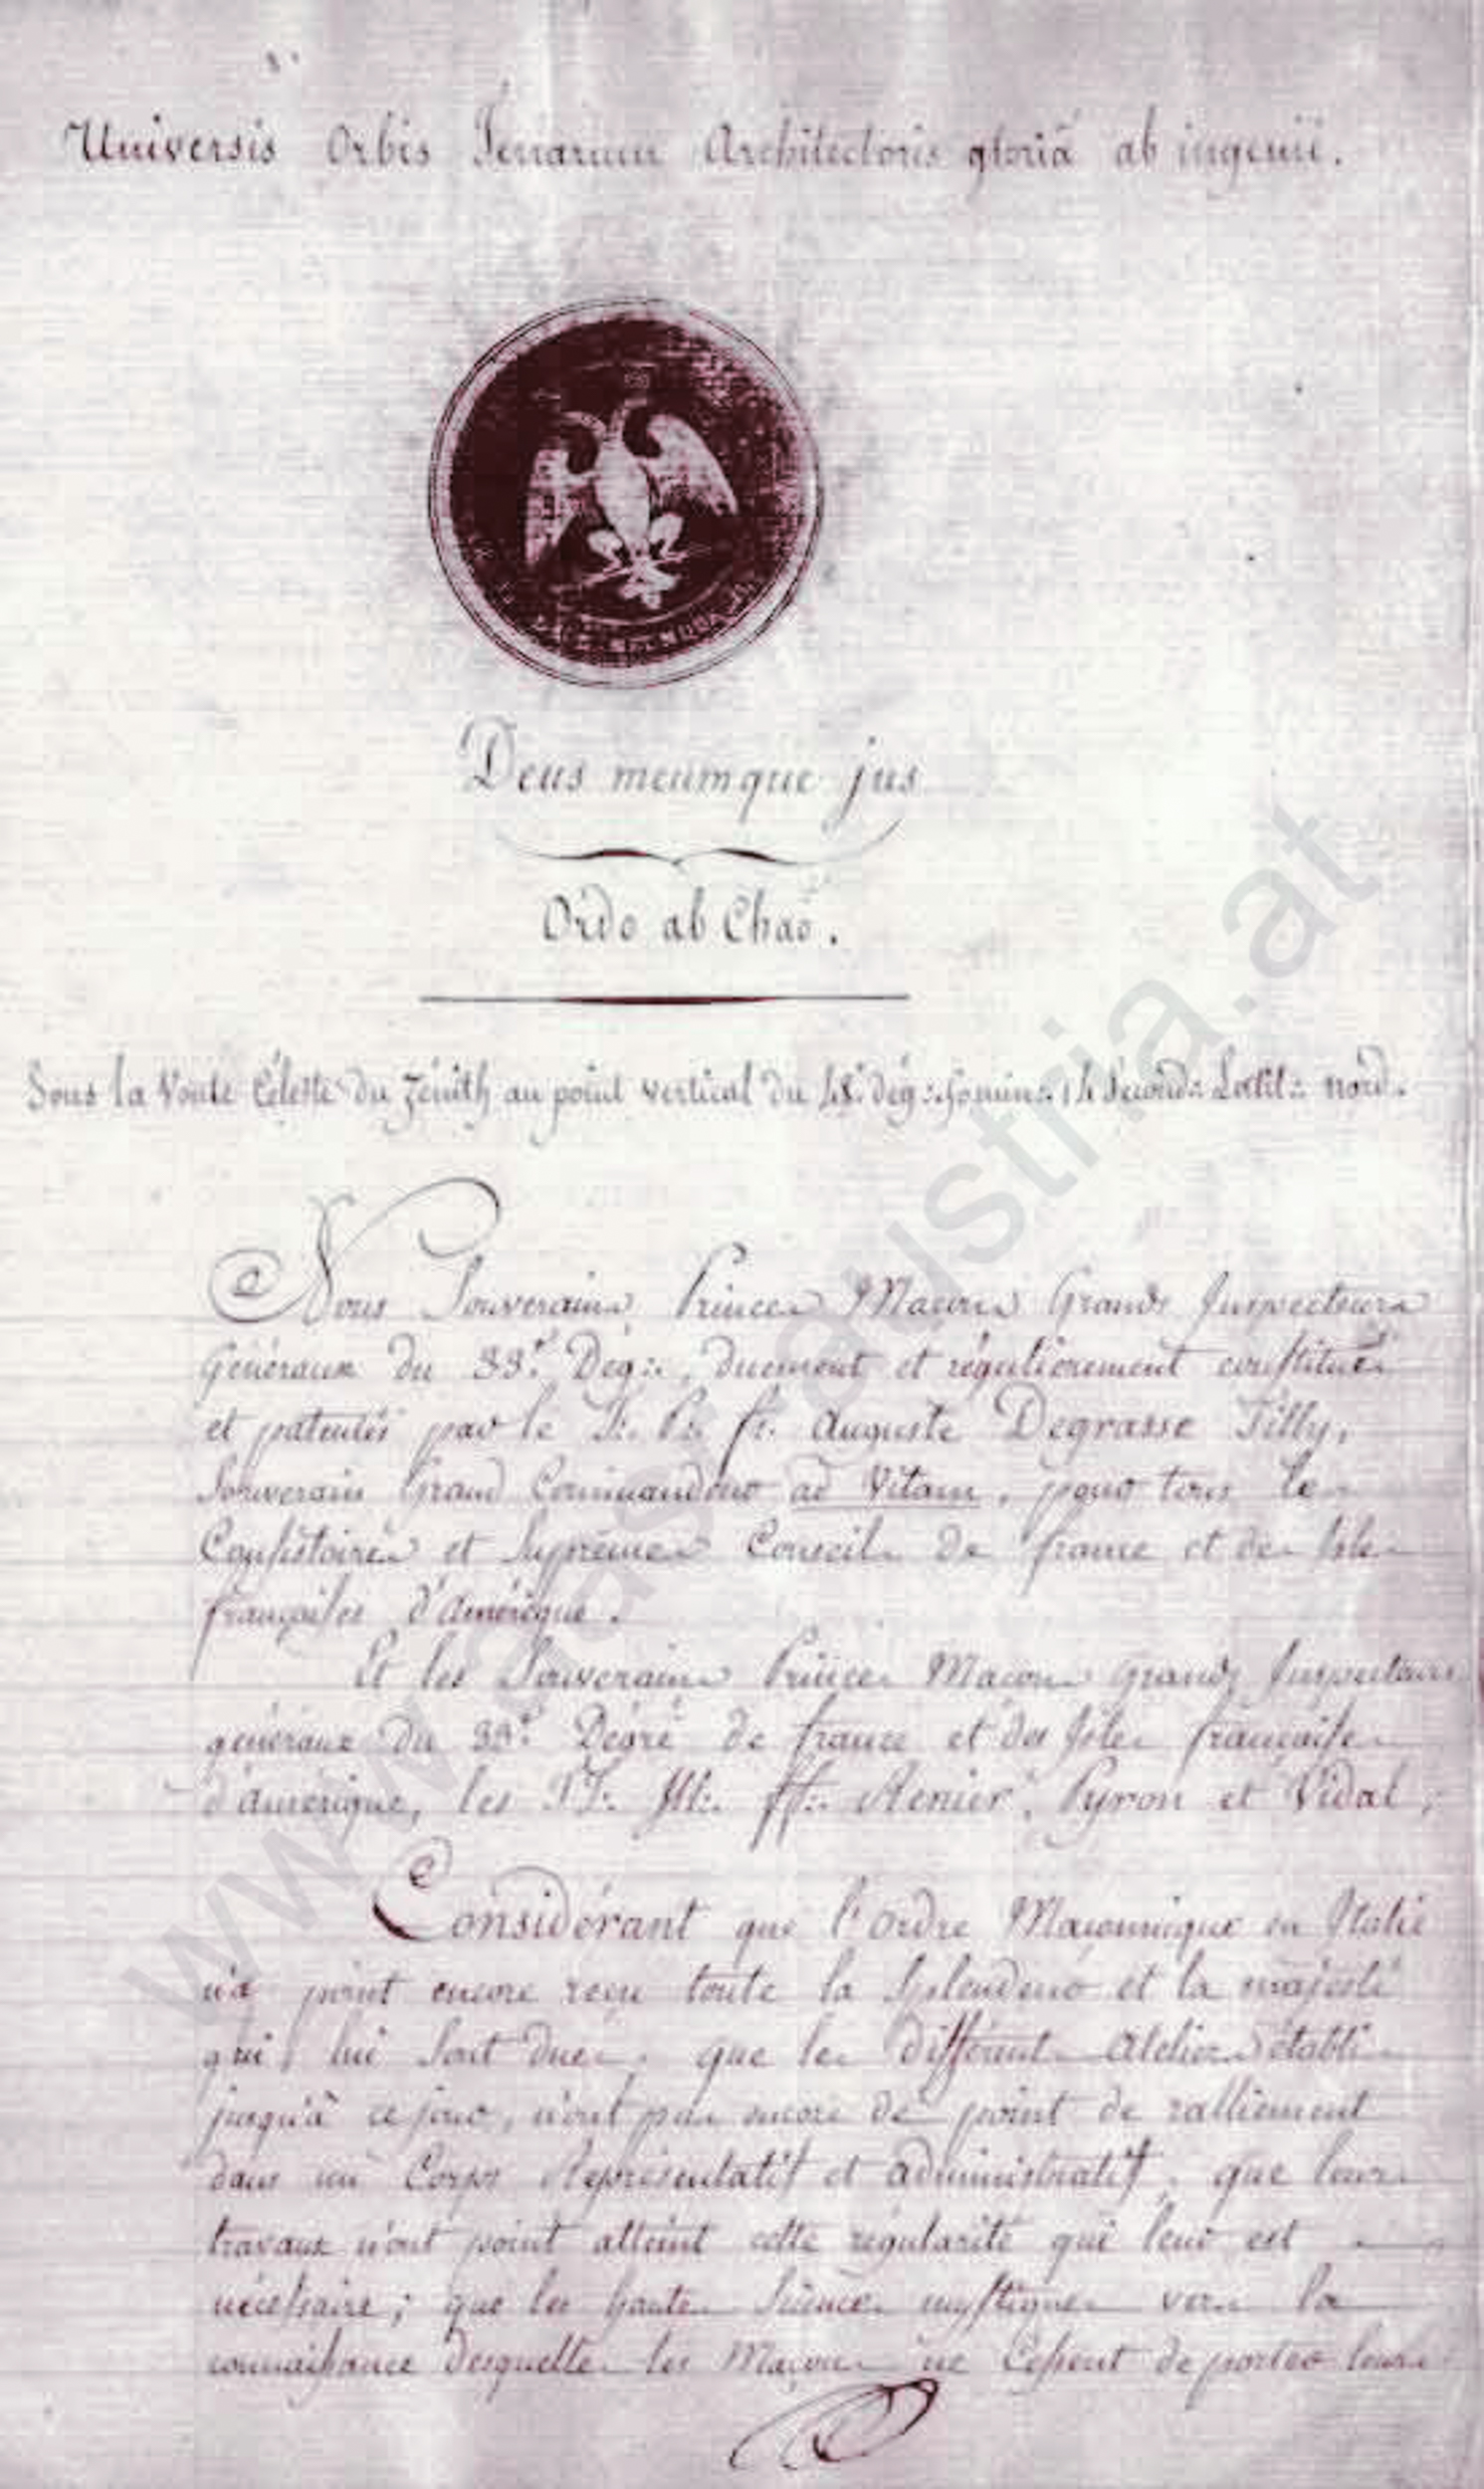 Universis Orbis Terrarum Architectoris gloriâ ab ingenii.
Deus meumque jus
Ordo ab Chaô.
Sous la Voute Céleste du Zénith au point vertical du 48.e dég: min: 14 Second: Latit: nord.
Nous Souverains Princes Maçons Grands Inspecteurs
Généraux du 33.e Deg:, duement et régulièrement constitués
et patentés par le fr. Auguste Degrasse Tilly,
Souverain Grand Commandeur ad Vitam, pour tous les
Consistoires et Suprêmes Conseils de france et des Isles
françaises d'Amérique.
Et les Souverains Princes Maçons Grands Inspecteurs
généraux du 33.e Dégré de france et des Isles françaises
d'amérique, les Renier, Pyron et Vidal,
Considérant que l'Ordre Maçonnique en Italie
n'a point encore reçu toute la Splendeur et la majesté
qui lui sont dues, que les différents Ateliers établis
jusqu'à ce jour, n'ont pas encore de point de ralliement
dans un Corps Représentatif et administratif, que leurs
travaux n'ont point atteint cette régularité qui leur est
nécessaire; que les hautes Sciences mystiques vers la
connaissance desquelles les Maçons ne Cessent de porter leurs
www. austria.at